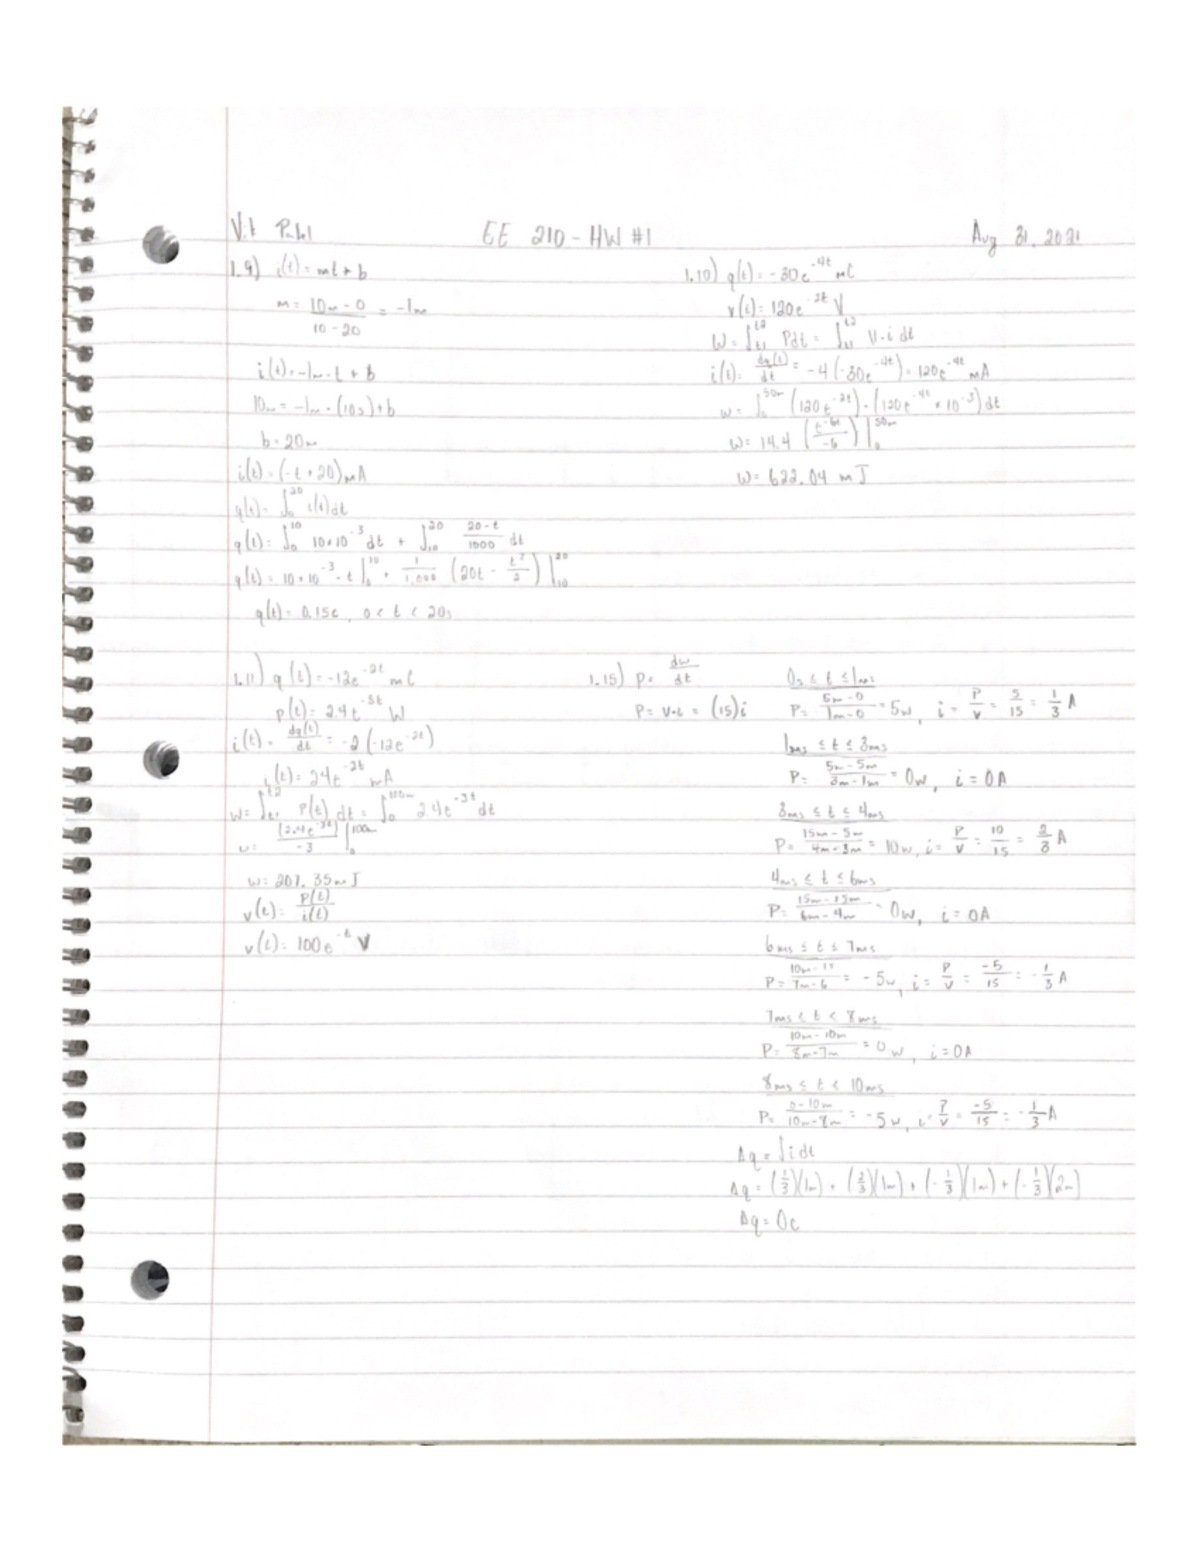 Vit Patel EE 210 - HW #1 Aug 31, 2021
1.9) i(t) = mt + b
m = 10m - 0 / 10 - 20 = -1m
i(t) = -1m · t + b
10m = -1m · (10s) + b
b = 20m
i(t) = (-t + 20) mA
q(t) = ∫₀²⁰ i(t) dt
q(t) = ∫₀¹⁰ 10×10⁻³ dt + ∫₁₀²⁰ 20-t / 1000 dt
q(t) = 10×10⁻³ · t |₀¹⁰ + 1/1,000 (20t - t²/2) |₁₀²⁰
q(t) = 0.15c, 0 < t < 20s
1.10) q(t) = -30e^-4t mC
v(t) = 120e^-2t V
W = ∫t1^t2 Pdt = ∫t1^t2 V·i dt
i(t) = dq(t)/dt = -4(-30e^-4t) = 120e^-4t mA
w = ∫₀^50m (120e^-2t) · (120e^-4t × 10^-3) dt
w = 14.4 (e^-6t / -6) |₀^50m
w = 622.04 mJ
1.11) q(t) = -12e^-2t mC
p(t) = 2.4e^-3t W
i(t) = dq(t)/dt = -2(-12e^-2t)
i(t) = 24e^-2t mA
w = ∫t1^t2 P(t) dt = ∫₀^100m 2.4e^-3t dt
w = (2.4e^-3t) / -3 |₀^100m
w = 207.35mJ
v(t) = P(t) / i(t)
v(t) = 100e^-t V
1.15) P = dw/dt
P = V·i = (15)i
0s ≤ t ≤ 1ms
P = 5m - 0 / 1m - 0 = 5w, i = P/V = 5/15 = 1/3 A
1ms ≤ t ≤ 3ms
P = 5m - 5m / 3m - 1m = 0w, i = 0A
3ms ≤ t ≤ 4ms
P = 15m - 5m / 4m - 3m = 10w, i = P/V = 10/15 = 2/3 A
4ms ≤ t ≤ 6ms
P = 15m - 15m / 6m - 4m = 0w, i = 0A
6ms ≤ t ≤ 7ms
P = 10m - 15 / 7m - 6 = -5w, i = P/V = -5/15 = -1/3 A
7ms ≤ t ≤ 8ms
P = 10m - 10m / 8m - 7m = 0w, i = 0A
8ms ≤ t ≤ 10ms
P = 0 - 10m / 10m - 8m = -5w, i = P/V = -5/15 = -1/3 A
Δq = ∫i dt
Δq = (1/3)(1m) + (2/3)(1m) + (-1/3)(1m) + (-1/3)(2m)
Δq = 0c